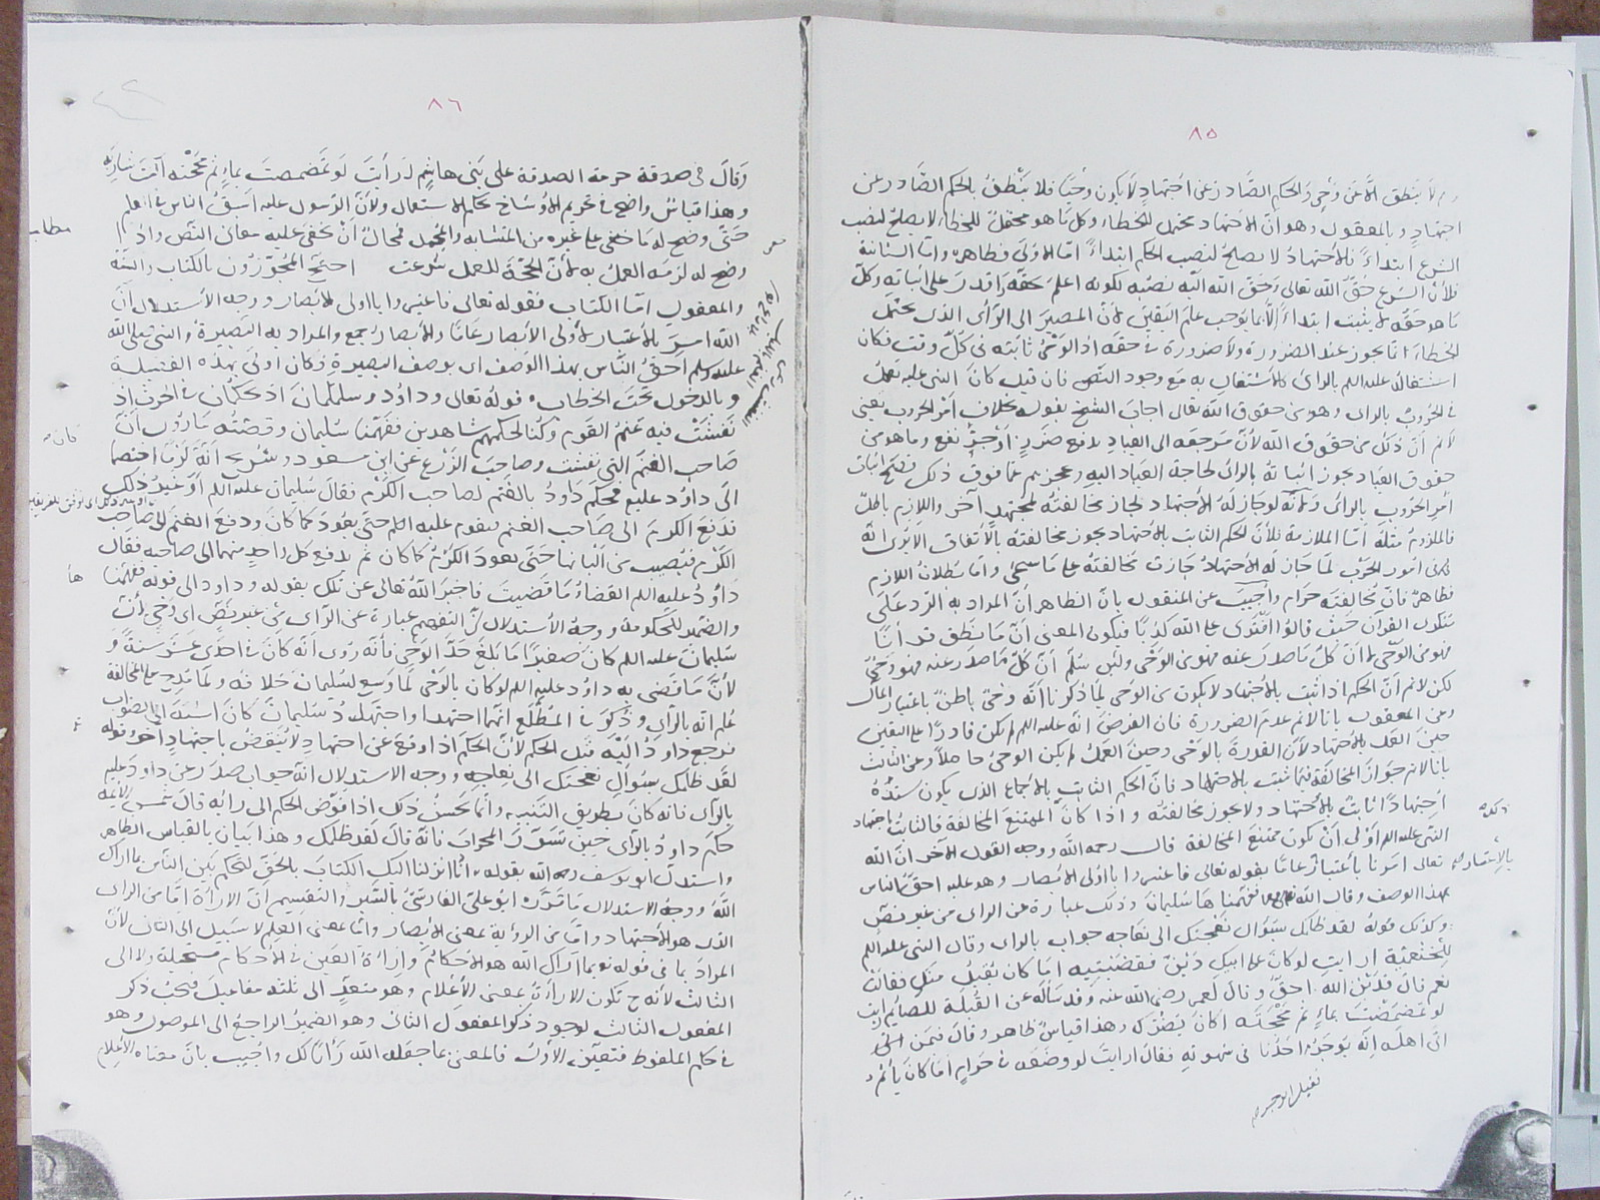 ٨٥
لا ينطق الا عن وحي والحكم الصادر عن اجتهاد لا يكون وحيا فلا ينطق بالحكم الصادر عن
اجتهاد وبالمعقول وهو ان الاجتهاد محتمل للخطاء وكل ما هو محتمل للخطاء لا يصلح لنصب
الشرع ابتداءً فالاجتهاد لا يصلح لنصب الحكم ابتداءً اما الاولى فظاهرة واما الثانية
فلان الشرع حق الله تعالى وحق الله اليه نصبه لكونه اعلم بحقه واقدر على اثباته وكل
ما هو حقه لا يثبت ابتداءً الا بما يوجب علم اليقين لان المصير الى الرأى الذى يحتمل
الخطاء انما يجوز عند الضرورة ولا ضرورة فى حقه اذ الوحى ثابته فى كل وقت فكان
اشتغاله عليه السلام بالرأى كالاشتغال به مع وجود النص فان قيل كان النبى عليه يعمل
فى الحروب بالراى وهو من حقوق الله تعالى اجاب الشيخ بقوله بخلاف امر الحروب يعنى
لا نم ان ذلك من حقوق الله لان مرجعه الى العباد بدفع ضرر او جر نفع وما هو من
حقوق العباد يجوز اثباته بالرائ لحاجة العباد اليه وعجزهم عما فوق ذلك فصح اثبات
أمر الحروب بالرائ ولانه لو جاز له الاجتهاد لجاز مخالفته لمجتهد آخر واللازم باطل
فالملزوم مثله اما الملازمة فلان الحكم الثابت بالاجتهاد يجوز مخالفته بالاتفاق الا يرى انه
فى امور الحرب لما جاز له الاجتهاد جازت مخالفته على ما سيجئ واما بطلان اللازم
فظاهر فان مخالفته حرام وأجيب عن المنقول بان الظاهر ان المراد به الرد على
منكرى القرآن حيث قالوا افترى على الله كذبا فيكون المعنى ان ما ينطق قرآنا
فهو من الوحى لا ان كل ما صدر عنه فهو من الوحى ولئن سلم ان كل ما صدر عنه فهو وحى
لكن لا نم ان الحكم اذا ثبت بالاجتهاد لا يكون من الوحى لما ذكرنا انه وحى باطن باعتبار المآل
وعن المعقول بانا لا نم عدم الضرورة فان الفرض انه عليه السلام لم يكن قادرا على اليقين
حين العمل بالاجتهاد لان القدرة بالوحى وحين العمل لم يكن الوحى حاصلا وعن الثالث
بانا لا نم جواز المخالفة فيما ثبت بالاجتهاد فان الحكم الثابت بالاجماع الذى يكون سنده
اجتهادا ثابت بالاجتهاد ولا يجوز مخالفته واذا كان الممتنع المخالفة فالثابت باجتهاد
النبى عليه السلام اولى ان يكون ممتنع المخالفة قال رحمه الله ووجه القول الآخر ان الله
تعالى امرنا باعتبار عاما بقوله تعالى فاعتبروا يا اولى الابصار وهو عليه احق الناس
بهذا الوصف وقال الله تعالى ففهمناها سليمان وذلك عبارة عن الراى من غير نص
وكذلك قوله لقد ظلمك بسؤال نعجتك الى نعاجه جواب بالراى وقال النبى عليه السلام
للخثعمية ارايت لو كان على ابيك دين فقضيتيه اما كان يقبل منك فقالت
نعم قال فدين الله احق وقال لعمر رضى الله عنه وقد سأله عن القبلة للصائم ارايت
لو تمضمضت بماء ثم مججته اكان يضرك وهذا قياس ظاهر وقال فيمن اتى
اتى اهله انه يوجر احدنا فى شهوته فقال ارايت لو وضعه فى حرام اما كان يأثم
بالاعتبار
٨٦
وقال فى صدقة حرمة الصدقة على بنى هاشم ارأيت لو تمضمضت بماء ثم مججته أكنت شاربه
وهذا قياس واضح فى تحريم الاوساخ بحكم الاستعمال ولان الرسول عليه اسبق الناس فى العلم
حتى وضح له ما خفى على غيره من المتشابه والمجمل فمحال ان يخفى عليه معانى النص واذا
وضح له لزمه العمل به لان الحجة للعمل شرعت احتج المجوزون بالكتاب والسنة
والمعقول اما الكتاب فقوله تعالى فاعتبروا يا اولى الابصار ووجه الاستدلال ان
الله امر بالاعتبار لاولى الابصار عاما والابصار جمع والمراد به البصيرة والنبى صلى الله
عليه وسلم احق الناس بهذا الوصف اى بوصف البصيرة فكان اولى بهذه الفضيلة
وبالدخول تحت الخطاب وقوله تعالى وداود وسليمان اذ يحكمان فى الحرث اذ
نفشت فيه غنم القوم وكنا لحكمهم شاهدين ففهمنا سليمان وقصته ما روى ان
صاحب الغنم التى نفشت وصاحب الزرع عن ابن مسعود وشريح انه كرم اختصما
الى داود عليه فحكم داود بالغنم لصاحب الكرم فقال سليمان عليه السلام او غير ذلك
ندفع الكرم الى صاحب الغنم فيقوم عليه السلام حتى يعود كما كان وندفع الغنم الى صاحب
الكرم فيصيب من البانها حتى يعود الكرم كما كان ثم يدفع كل واحد منهما الى صاحبه فقال
داود عليه السلام القضاء ما قضيت فاخبر الله تعالى عن تلك بقوله وداود الى قوله ففهمنا
والضمير للحكومة ووجه الاستدلال ان التفهيم عبارة عن الرأى من غير نص اى وحى لان
سليمان عليه السلام كان صغيرا ما بلغ حد الوحى فانه روى انه كان فى احدى عشرة سنة و
لان ما قضى به داود عليه السلام لو كان بالوحى لما وسع لسليمان خلافه ولما مدح على المخالفة
علم انه بالرأى وذكر فى المطلع انهما اجتهدا واجتهاد سليمان كان اشبه الى الصواب
فرجع داود اليه قبل الحكم لان الحكم اذا وقع عن اجتهاد لا ينقض باجتهاد آخر وقوله
لقد ظلمك بسؤال نعجتك الى نعاجه ووجه الاستدلال انه جواب صدر عن داود عليه
بالرأى فانه كان بطريق التنبيه وانما يحسن ذلك اذا فوض الحكم الى رايه قال شمس الائمة
حكم داود بالرأى حين تسور المحراب فانه قال لقد ظلمك وهذا بيان بالقياس الظاهر
واستدل ابو يوسف رحمه الله بقوله انا انزلنا اليك الكتاب بالحق لتحكم بين الناس بما اراك
الله ووجه الاستدلال ما قرره ابو على الفارسى بالسبر والتقسيم ان الاراءة اما من الراى
الذى هو الاجتهاد واما من الرؤية بمعنى الابصار واما بمعنى العلم لا سبيل الى الثانى لان
المراد بما فى قوله بما اراك الله هو الاحكام واراءة العين فى الاحكام مستحيلة ولا الى
الثالث لانه ح تكون الاراءة بمعنى الاعلام وهو متعد الى ثلثة مفاعيل فيجب ذكر
المفعول الثالث لوجود ذكر المفعول الثانى وهو الضمير الراجع الى الموصول وهو
فى حكم الملفوظ فتعين الاول فالمعنى بما جعله الله رأيا لك واجيب بان معناه الاعلام